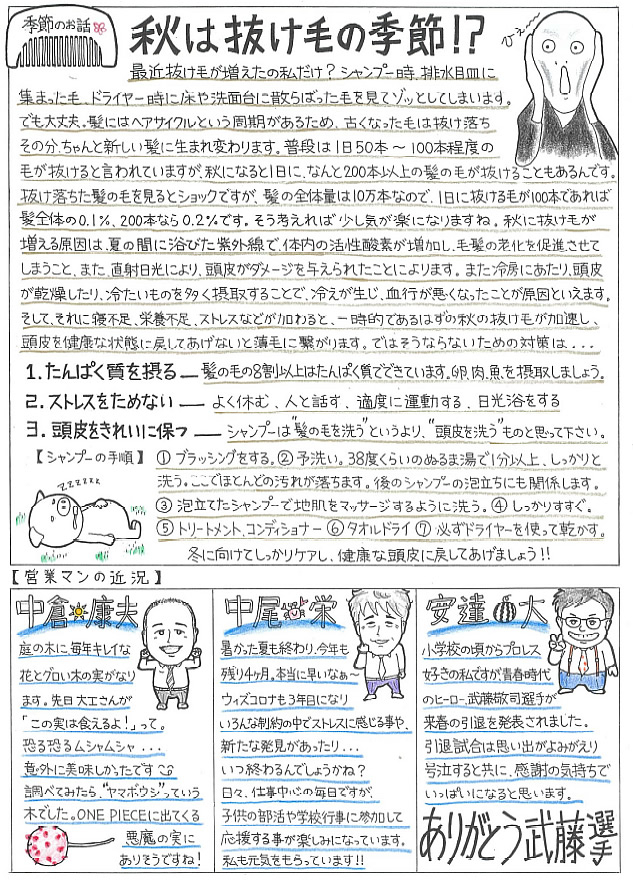 季節のお話
秋は抜け毛の季節!?
ひぇ〜
最近抜け毛が増えたの私だけ?シャンプー時、排水目皿に
集まった毛、ドライヤー時に床や洗面台に散らばった毛を見てゾッとしてしまいます。
でも大丈夫。髪にはヘアサイクルという周期があるため、古くなった毛は抜け落ち
その分、ちゃんと新しい髪に生まれ変わります。普段は1日50本〜100本程度の
毛が抜けると言われていますが、秋になると1日に、なんと200本以上の髪の毛が抜けることもあるんです。
抜け落ちた髪の毛を見るとショックですが、髪の全体量は10万本なので、1日に抜ける毛が100本であれば
髪全体の0.1%、200本なら0.2%です。そう考えれば少し気が楽になりますね。秋に抜け毛が
増える原因は、夏の間に浴びた紫外線で、体内の活性酸素が増加し、毛髪の老化を促進させて
しまうこと、また、直射日光により、頭皮がダメージを与えられたことによります。また冷房にあたり、頭皮
が乾燥したり、冷たいものを多く摂取することで、冷えが生じ、血行が悪くなったことが原因といえます。
そして、それに寝不足、栄養不足、ストレスなどが加わると、一時的であるはずの秋の抜け毛が加速し、
頭皮を健康な状態に戻してあげないと薄毛に繋がります。ではそうならないための対策は...
1.たんぱく質を摂る— 髪の毛の8割以上はたんぱく質でできています。卵、肉、魚を摂取しましょう。
2.ストレスをためない— よく休む、人と話す、適度に運動する、日光浴をする
3.頭皮をきれいに保つ— シャンプーは"髪の毛を洗う"というより、"頭皮を洗う"ものと思って下さい。
【シャンプーの手順】 ①ブラッシングをする。②予洗い。38度くらいのぬるま湯で1分以上、しっかりと
洗う。ここでほとんどの汚れが落ちます。後のシャンプーの泡立ちにも関係します。
zzzzzz
③泡立てたシャンプーで地肌をマッサージするように洗う。④しっかりすすぐ。
⑤トリートメント、コンディショナー ⑥タオルドライ ⑦必ずドライヤーを使って乾かす。
冬に向けてしっかりケアし、健康な頭皮に戻してあげましょう!!
【営業マンの近況】
中倉 康夫
庭の木に、毎年キレイな
花とグロい木の実がなり
ます。先日大工さんが
「この実は食えるよ!」って。
恐る恐るムシャムシャ...
意外に美味しかったです
調べてみたら、"ヤマボウシ"っていう
木でした。ONE PIECEに出てくる
悪魔の実に
ありそうですね!
中尾 栄
暑かた夏も終わり、今年も
残り4ヶ月。本当に早いなぁ〜
ウィズコロナも3年目になり
いろんな制約の中でストレスに感じる事や、
新たな発見があったり...
いつ終わるんでしょうかね?
日々、仕事中心の毎日ですが、
子供の部活や学校行事に参加して
応援する事が楽しみになっています。
私も元気をもらっています!!
安達 大
小学校の頃からプロレス
好きの私ですが、青春時代
のヒーロー、武藤敬司選手が
来春の引退を発表されました。
引退試合は思い出がよみがえり
号泣すると共に、感謝の気持ちで
いっぱいになると思います。
ありがとう武藤選手